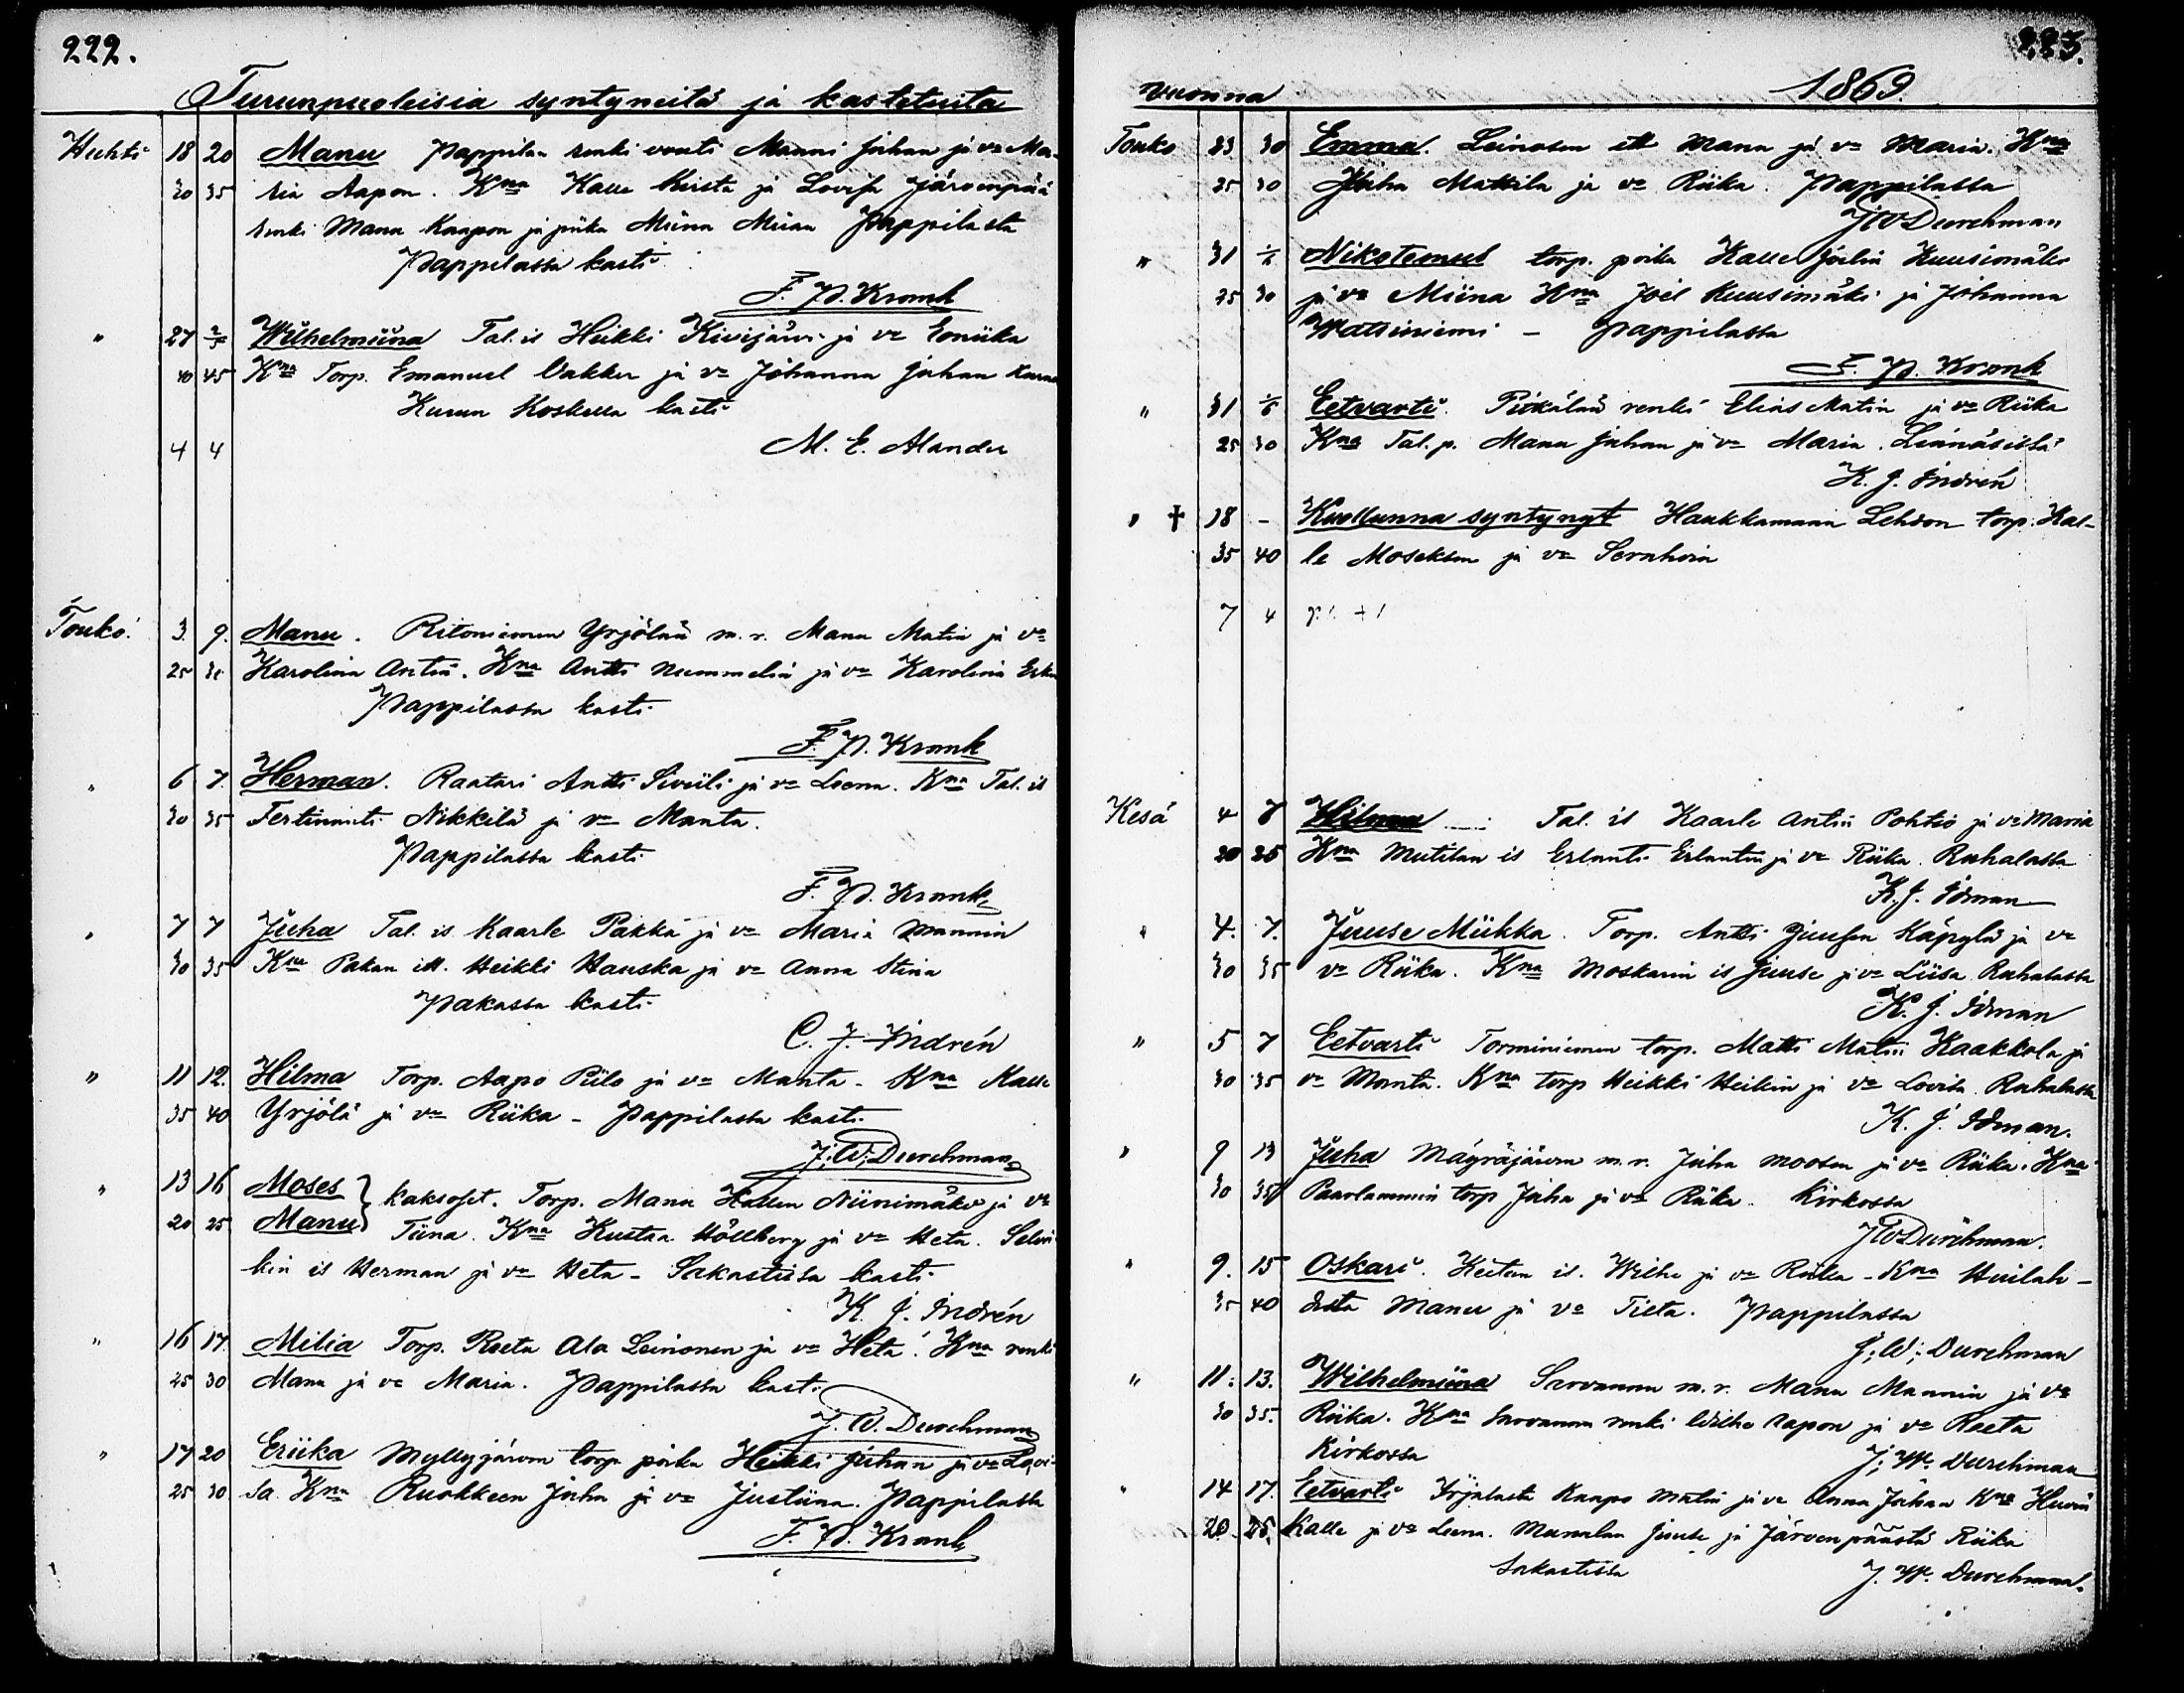 222.
Turunpuoleisia syntyneitä ja kastetuita
Huhti 18 20 Manu Pappilan renki vouti Manni Juhan ja va Ma-
30 35 ria Aapon. Kna Kalle Kiista ja Lovisa Järvenpää
renki Manu Kaapon ja piika Miina Pappilasta
Pappilassa kasti
F. P. Krank
" 27 2/5 Wilhelmiina Tal. is Heikki Kivijärvi ja va Eriika
40 45 Kna Torp. Emanuel Vakker ja va Johanna Juhan
Kurun Koskella kasti
4 4 M. E. Alander
Touko. 3. 9. Manu. Ritoniemen Yrjölän m. r. Manu Matin ja va
25 30 Karolina Antin. Kna Antti Nummelin ja va Karolina
Pappilassa kasti
F. P. Krank
" 6 7. Herman. Raatari Antti Siviili ja va Leena. Kna Tal. is
30 35 Fertinanti Nikkilä ja va Manta.
Pappilassa kasti
F. P. Krank
" 7 7 Juha Tal. is Kaarle Pakka ja va Maria Mannin
30 35 Kna Pakan itt. Heikki Hauska ja va Anna Stina
Pakassa kasti
C. J. Indrén
" 11 12. Hilma Torp. Aapo Piilo ja va Manta - Kna Kalle
35 40 Yrjölä ja va Riika - Pappilassa kasti
J. W. Durchman
" 13 16 Moses } kaksoset. Torp. Manu Kallen Niinimäki ja va
20 25 Manu } Tiina. Kna Kustaa Hållberg ja va Heta. Selvi-
kin is Herman ja va Heta - Sakastissa kasti
K. J. Indrén
" 16 17. Milia Torp. Reeta Ala Leinonen ja va Heta. Kna renki
25 30 Manu ja va Maria. Pappilassa kasti
J. W. Durchman
" 17 20 Eriika Myllyjärven torp. poika Heikki Juhan ja va Lovi-
25 30 sa. Kna Ruokkeen Juha ja va Justiina. Pappilassa
F. P. Krank
223.
vuonna 1869.
Touko 23 30 Emma. Leinosen itt Manu ja va Maria. Kna
25 30 Juha Mattila ja va Riika. Pappilassa
J W Durchman
" 31 1/6 Nikotemus torp. poika Kalle Joelin Kuusimäki
25 30 ja va Miina Kna Joel Kuusimäki ja Johanna
Watsiniemi - Pappilassa
F. P. Krank
" 31 1/6 Eetvarti. Pitkälän renki Elias Matin ja va Riika
25 30 Kna Tal. p. Manu Juhan ja va Maria.
K. J. Indrén
" † 18 - Kuollunna syntynyt Haukkamaan Lehdon torp. Kal-
35 40 le Moseksen ja va Sernhvia
7 4
Kesä 4 7 Hilma Tal. is Kaarle Antin Pohtio ja va Maria
20 25 Kna Mutilan is Erlanti Erlantin ja va Riika. Ruhalassa
K. J. Idman
" 4. 7. Juuse Miikka. Torp. Antti Juusen Käpylä ja va
30 35 va Riika. Kna Moskarin is Juuse ja va Liisa Ruhalassa
K. J. Idman
" 5 7 Eetvarti Torminiemen torp. Matti Matin Kaakkola ja
30 35 va Manta. Kna torp Heikki Heikin ja va Lovisa. Ruhalassa
K. J. Idman.
" 9 13 Juha Mäyräjärven m. r. Juha Moosen ja va Riika. Kna
30 35 Paarlammin torp Juha ja va Riika. Kirkossa
J W Durchman.
" 9. 15 Oskari. Keiton is. Wilhe ja va Riika - Kna Huilah-
35 40 desta Manu ja va Tilta. Pappilassa
J. W. Durchman
" 11. 13. Wilhelmiina Sarvannon m. r. Manu Mannin ja va
30 35. Riika. Kna Sarvannon renki Wilhe Aapon ja va Reeta
Kirkossa J. W. Durchman
" 14 17. Eetvarti Yrjälästä Kaapo Matin ja va Anna Juhan Kna
20. 25. Kalle ja va Leena. Manalan Juuse ja Järvenpäästä Riika
Sakastissa J. W. Durchman.